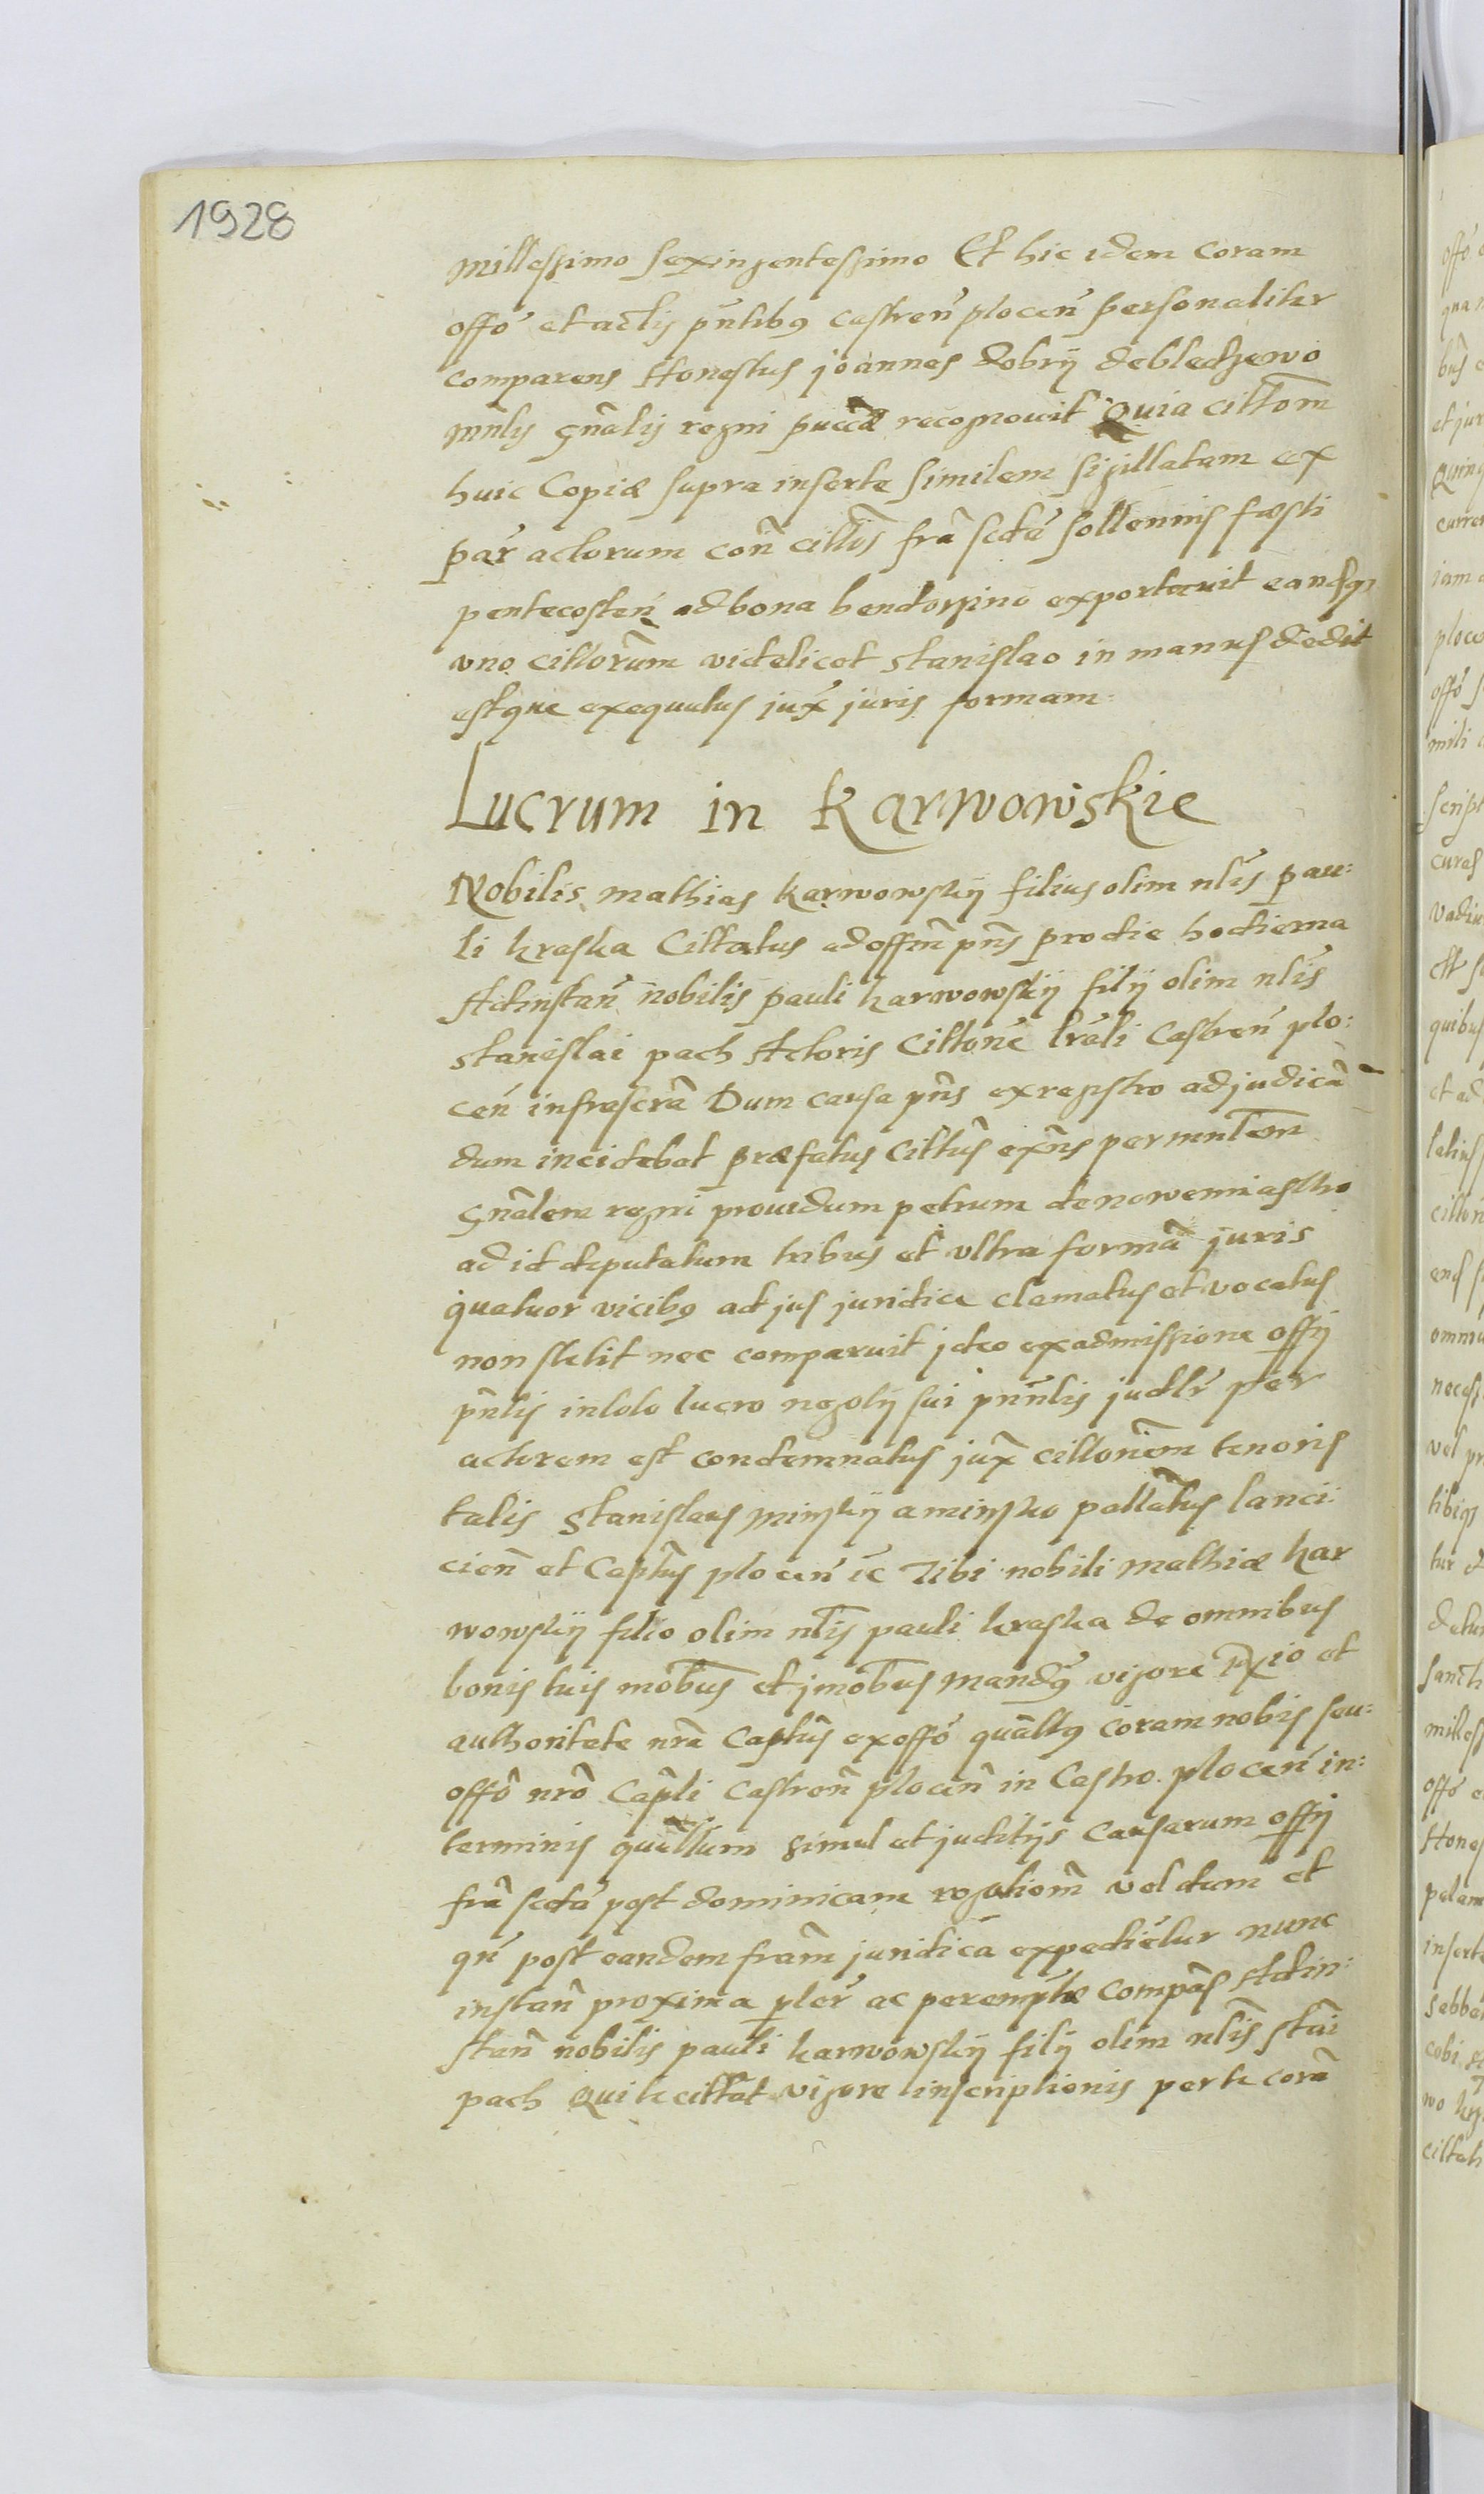 1928
millessimo sexingentessimo Et hic idem coram
offo et actis pñtibus castreñ ploceñ personaliter
comparens Honestus joannes dobrij de bledzewo
mnlis gnãlis regni puccã recognouit Quia cittom
huic Copiæ supra inserte similem sigillatam ex
par actorum coñ cittũs frã scda sollennis fæsti
pentecosteñ ad bona bendorzino exportauit eandqz
uno cittorum videlicet stanislao in manus dedit
estque exequutus jux juris formam
Lucrum in Karwowskie
Nobilis mathias karwowskij filius olim nlis pau:
li kraska Cittatus ad offm pñs pro die hodierna
Ad instañ nobilis pauli karwowskij filij olim nlis
stanislai pach Actoris Cittone lrali Castreñ plo:
ceñ infrascrã Dum causa pñs ex regstro ad judicã
dum incidebat præfatus cittus exñs per mnlem
gnãlem regni prouidum petrum de nowemiastho
ad id deputatum tribus et ultra formã juris
quatuor vicibus ad jus juridice clamatus et vocatus
non stetit nec comparuit jdeo ex admissione offij
pñtis in lolo lucro negotij sui pnñlis judlr per
actorem est condemnatus jux cittonem tenoris
talis Stanislaus minskij a minsko pallatus lanci:
cieñ et Captus ploceñ ec Tibi nobili mathiæ kar
wowskij filio olim nlis pauli kraska de omnibus
bonis tuis mobus et jmobus mandus vigore
authoritate nrã Captus ex offo quattus coram nobis seu:
offo nro Capli Castreñ ploceñ in Castro ploceñ in:
terminis quællum simul et juditijs causarum offij
frã scda post dominicam rogationũ vel dum et
qñ post eandem frãm juridica expedietur nunc
instañ proxima pler ac peremptæ compãs Ad in:
stañ nobilis pauli karwowskij filij olim nlis stai
pach Qui te cittat vigore inscriptionis per te corã